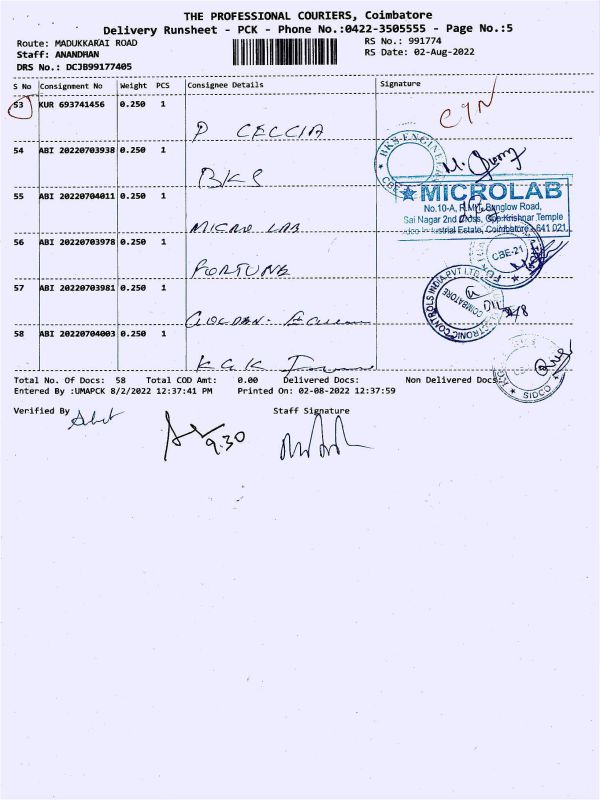 THE PROFESSIONAL COURIERS, Coimbatore
Delivery Runsheet - PCK - Phone No.:0422-3505555 - Page No.:5
Route: MADUKKARAI ROAD
RS No.: 991774
Staff: ANANDHAN
RS Date: 02-Aug-2022
DRS No.: DCJB99177405
S No Consignment No Weight PCS Consignee Details Signature
53 KUR 693741456 0.250 1
P CECCIA
54 ABI 20220703938 0.250 1
BKS
BKS-ENGINE
CBE
55 ABI 20220704011 0.250 1
MICRO LAB
MICROLAB
No.10-A, Bunglow Road,
Sai Nagar 2nd Cross, Opp.Krishnar Temple
Industrial Estate, Coimbatore - 641 021.
56 ABI 20220703978 0.250 1
FORTUNE
CBE-21
57 ABI 20220703981 0.250 1
ELECTRONIC CONTROLS INDIA PVT LTD
COIMBATORE
58 ABI 20220704003 0.250 1
KGK
SIDCO
Total No. Of Docs: 58 Total COD Amt: 0.00 Delivered Docs: Non Delivered Docs:
Entered By :UMAPCK 8/2/2022 12:37:41 PM Printed On: 02-08-2022 12:37:59
Verified By Staff Signature
9.30